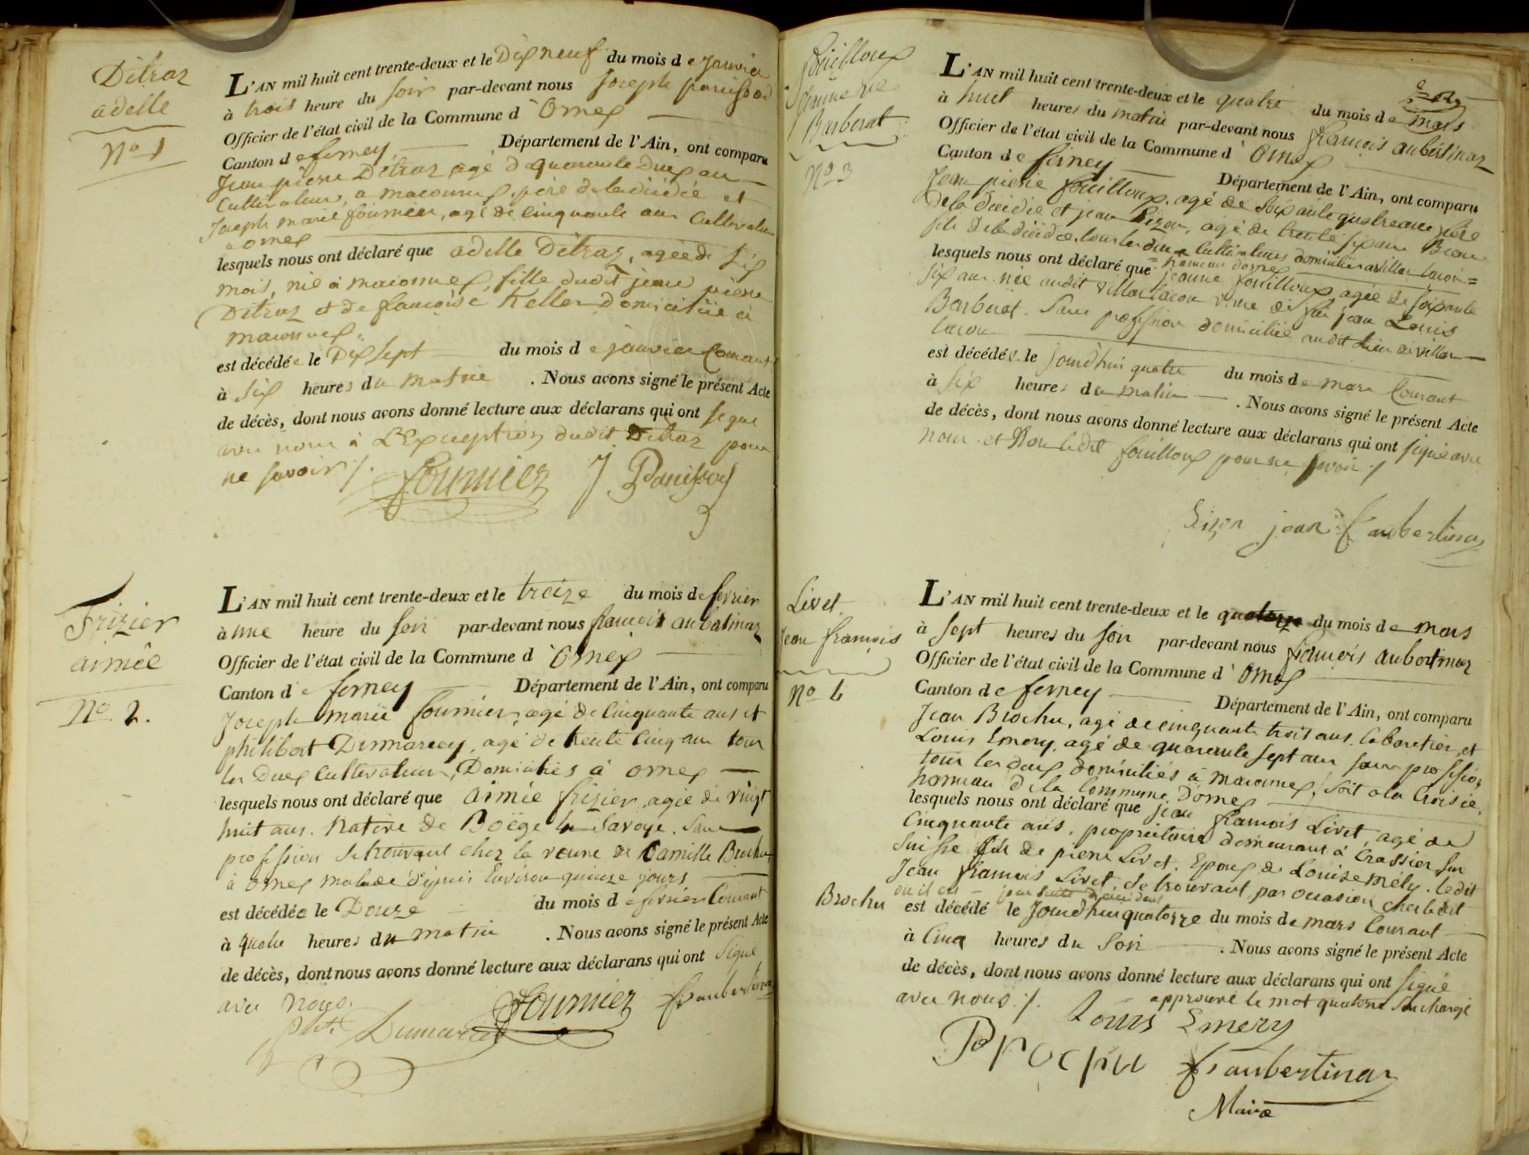 Détraz
adelle
No 1
L'AN mil huit cent trente-deux et le Dix neuf du mois de janvier
à trois heure du soir par-devant nous Joseph panissod
Officier de l'état civil de la Commune d'Ornex
Canton de ferney Département de l'Ain, ont comparu
Jean pierre Détraz agé de quarante Deux an
Cultivateur, a maconnex, père de la décédée et
Joseph marie fournier, agé de cinquante ans Cultivateur
a ornex
lesquels nous ont déclaré que adelle Détraz, agée de six
mois, née à maconnex, fille dudit jean pierre
Détraz et de françoise Keller domiciliée à
maconnex
est décédée le Dix sept du mois de janvier Courant
à six heures du matin . Nous avons signé le présent Acte
de décès, dont nous avons donné lecture aux déclarans qui ont signé
avec nous à L'Exception dudit Détraz pour
ne savoir /.
Fournier J Panissod
Frizier
aimée
No. 2.
L'AN mil huit cent trente-deux et le treize du mois de fevrier
à une heure du soir par-devant nous françois aubertinaz
Officier de l'état civil de la Commune d'Ornex
Canton de ferney Département de l'Ain, ont comparu
Joseph marie fournier, agé de Cinquante ans et
philibert Dumarcey, agé de trente Cinq ans tous
les deux Cultivateurs, Domiciliés à ornex
lesquels nous ont déclaré que aimée frizier, agée de vingt
huit ans. Native de Boëge en Savoye. Sans
profession se trouvant chez la veuve de Camille Brochu
à Ornex malade depuis Environ quinze jours
est décédée le Douze du mois de fevrier Courant
à quatre heures du matin . Nous avons signé le présent Acte
de décès, dont nous avons donné lecture aux déclarans qui ont signé
avec nous.
Fournier f aubertinaz
Dumarcey
fouilloux
jeanne ve
Barberat
No 3
L'AN mil huit cent trente-deux et le quatre du mois de mars
à huit heures du matin par-devant nous françois aubertinaz
Officier de l'état civil de la Commune d'Ornex
Canton de ferney Département de l'Ain, ont comparu
Jean pierre fouilloux, agé de soixante quatre ans frère
de la décédée et jean Lizon, agé de trente six ans Beau
fils de la décédée, tous les deux Cultivateurs domiciliés a villar tacon
hameau dornex
lesquels nous ont déclaré que jeanne fouilloux agée de soixante
six ans née audit villar tacon veuve de feu jean Louis
Barberat. Sans profession domiciliée audit Lieu de villar
tacon
est décédée le jourd'hui quatre du mois de mars Courant
à six heures du matin . Nous avons signé le présent Acte
de décès, dont nous avons donné lecture aux déclarans qui ont signé avec
nous et Non ledit fouilloux pour ne savoir /
Lizon jean f aubertinaz
Livet
jean françois
No 4
L'AN mil huit cent trente-deux et le quatorze du mois de mars
à sept heures du soir par-devant nous françois aubertinaz
Officier de l'état civil de la Commune d'Ornex
Canton de ferney Département de l'Ain, ont comparu
Jean Brochu, agé de cinquante trois ans, cabaretier, et
Louis Emery, agé de quarante sept ans sans profession
tous les deux domiciliés à maconnex, soit a la Croisée
hameau de la Commune D'ornex
lesquels nous ont déclaré que jean françois Livet, agé de
Cinquante ans, propriétaire demeurant à Crassier sur
Suisse fils de pierre Livet. Epoux de Louise mély. ledit
Jean françois Livet se trouvant par occasion chez ledit
Brochu
est décédé le Jourdhui quatorze du mois de mars Courant
à Cinq heures du soir . Nous avons signé le présent Acte
de décès, dont nous avons donné lecture aux déclarans qui ont signé
avec nous /. approuvé le mot quatorze surchargé
Louis Emery
Brochu f aubertinaz
Maire